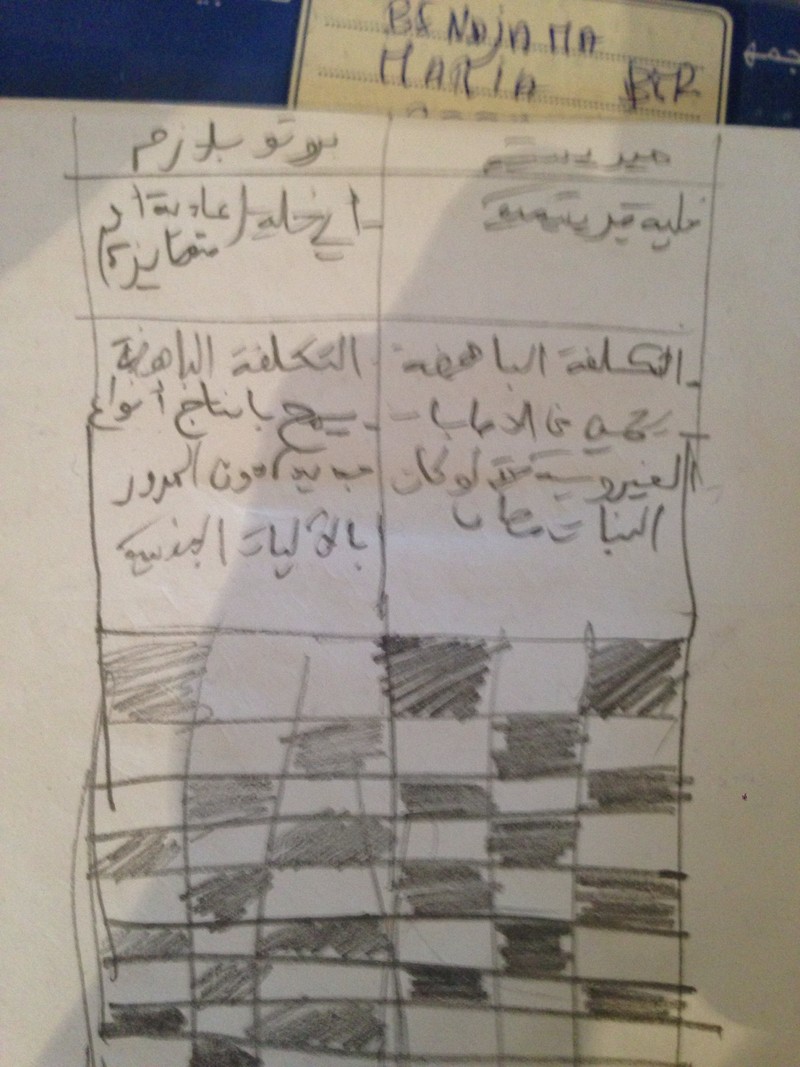 BENDJAMA
MARIA BER
ميريستيم
بروتوبلازم
خلية ميريستيمية
- أي خلية (عادية أو
متمايزة)
- التكلفة الباهضة
يحمي من الاصابات
الفيروسية حتى لو كان
النبات مصاب
- التكلفة الباهضة
- يسمح بانتاج أنواع
جديدة دون المرور
بالآليات الجنسية